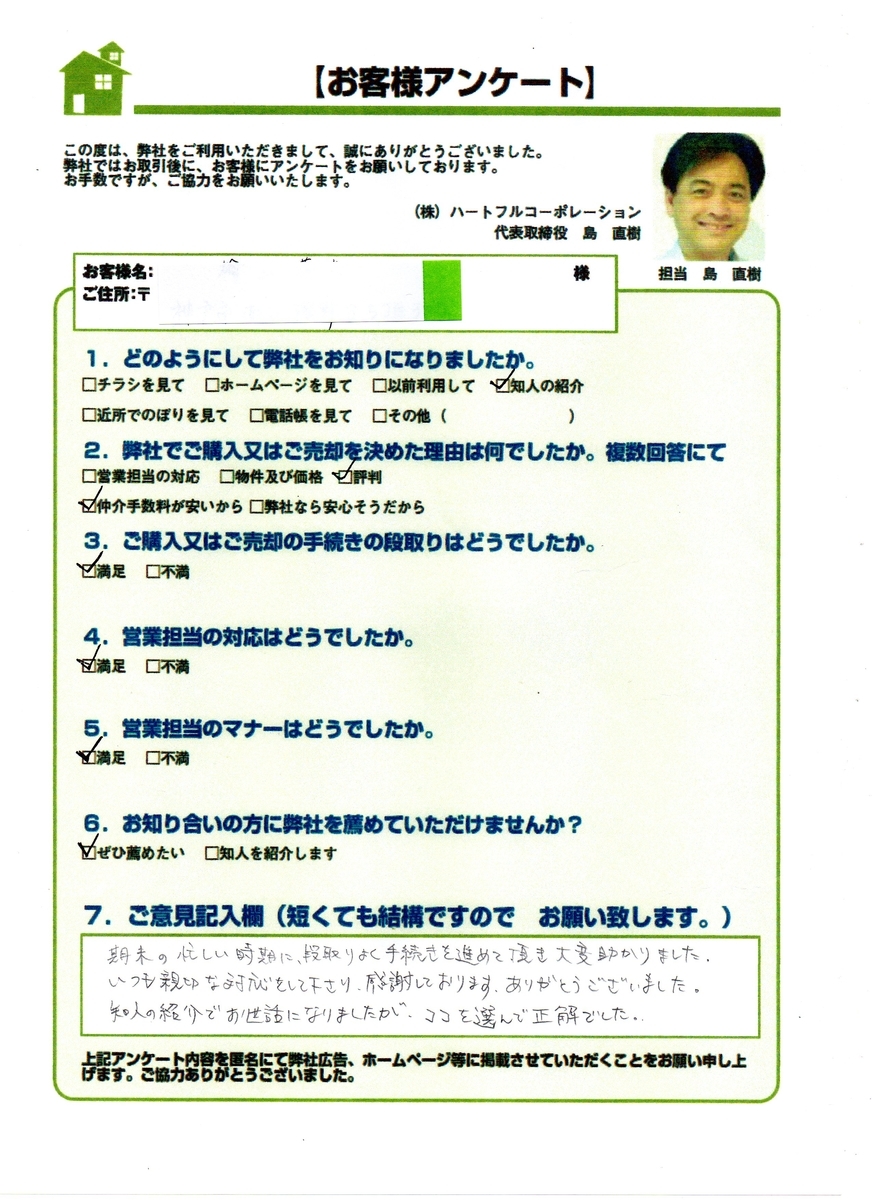 【お客様アンケート】
この度は、弊社をご利用いただきまして、誠にありがとうございました。
弊社ではお取引後に、お客様にアンケートをお願いしております。
お手数ですが、ご協力をお願いいたします。
（株）ハートフルコーポレーション
代表取締役　島　直樹
担当　島　直樹
お客様名: 様
ご住所:〒
１．どのようにして弊社をお知りになりましたか。
□チラシを見て　□ホームページを見て　□以前利用して　☑知人の紹介
□近所でのぼりを見て　□電話帳を見て　□その他（　　　　　　　）
２．弊社でご購入又はご売却を決めた理由は何でしたか。複数回答にて
□営業担当の対応　□物件及び価格　☑評判
☑仲介手数料が安いから □弊社なら安心そうだから
３．ご購入又はご売却の手続きの段取りはどうでしたか。
☑満足　□不満
４．営業担当の対応はどうでしたか。
☑満足　□不満
５．営業担当のマナーはどうでしたか。
☑満足　□不満
６．お知り合いの方に弊社を薦めていただけませんか？
☑ぜひ薦めたい　□知人を紹介します
７．ご意見記入欄（短くても結構ですので　お願い致します。）
期末の忙しい時期に、段取りよく手続きを進めて頂き大変助かりました.
いつも親切な対応をして下さり、感謝しております。ありがとうございました。
知人の紹介でお世話になりましたが、ココを選んで正解でした。
上記アンケート内容を匿名にて弊社広告、ホームページ等に掲載させていただくことをお願い申し上
げます。ご協力ありがとうございました。